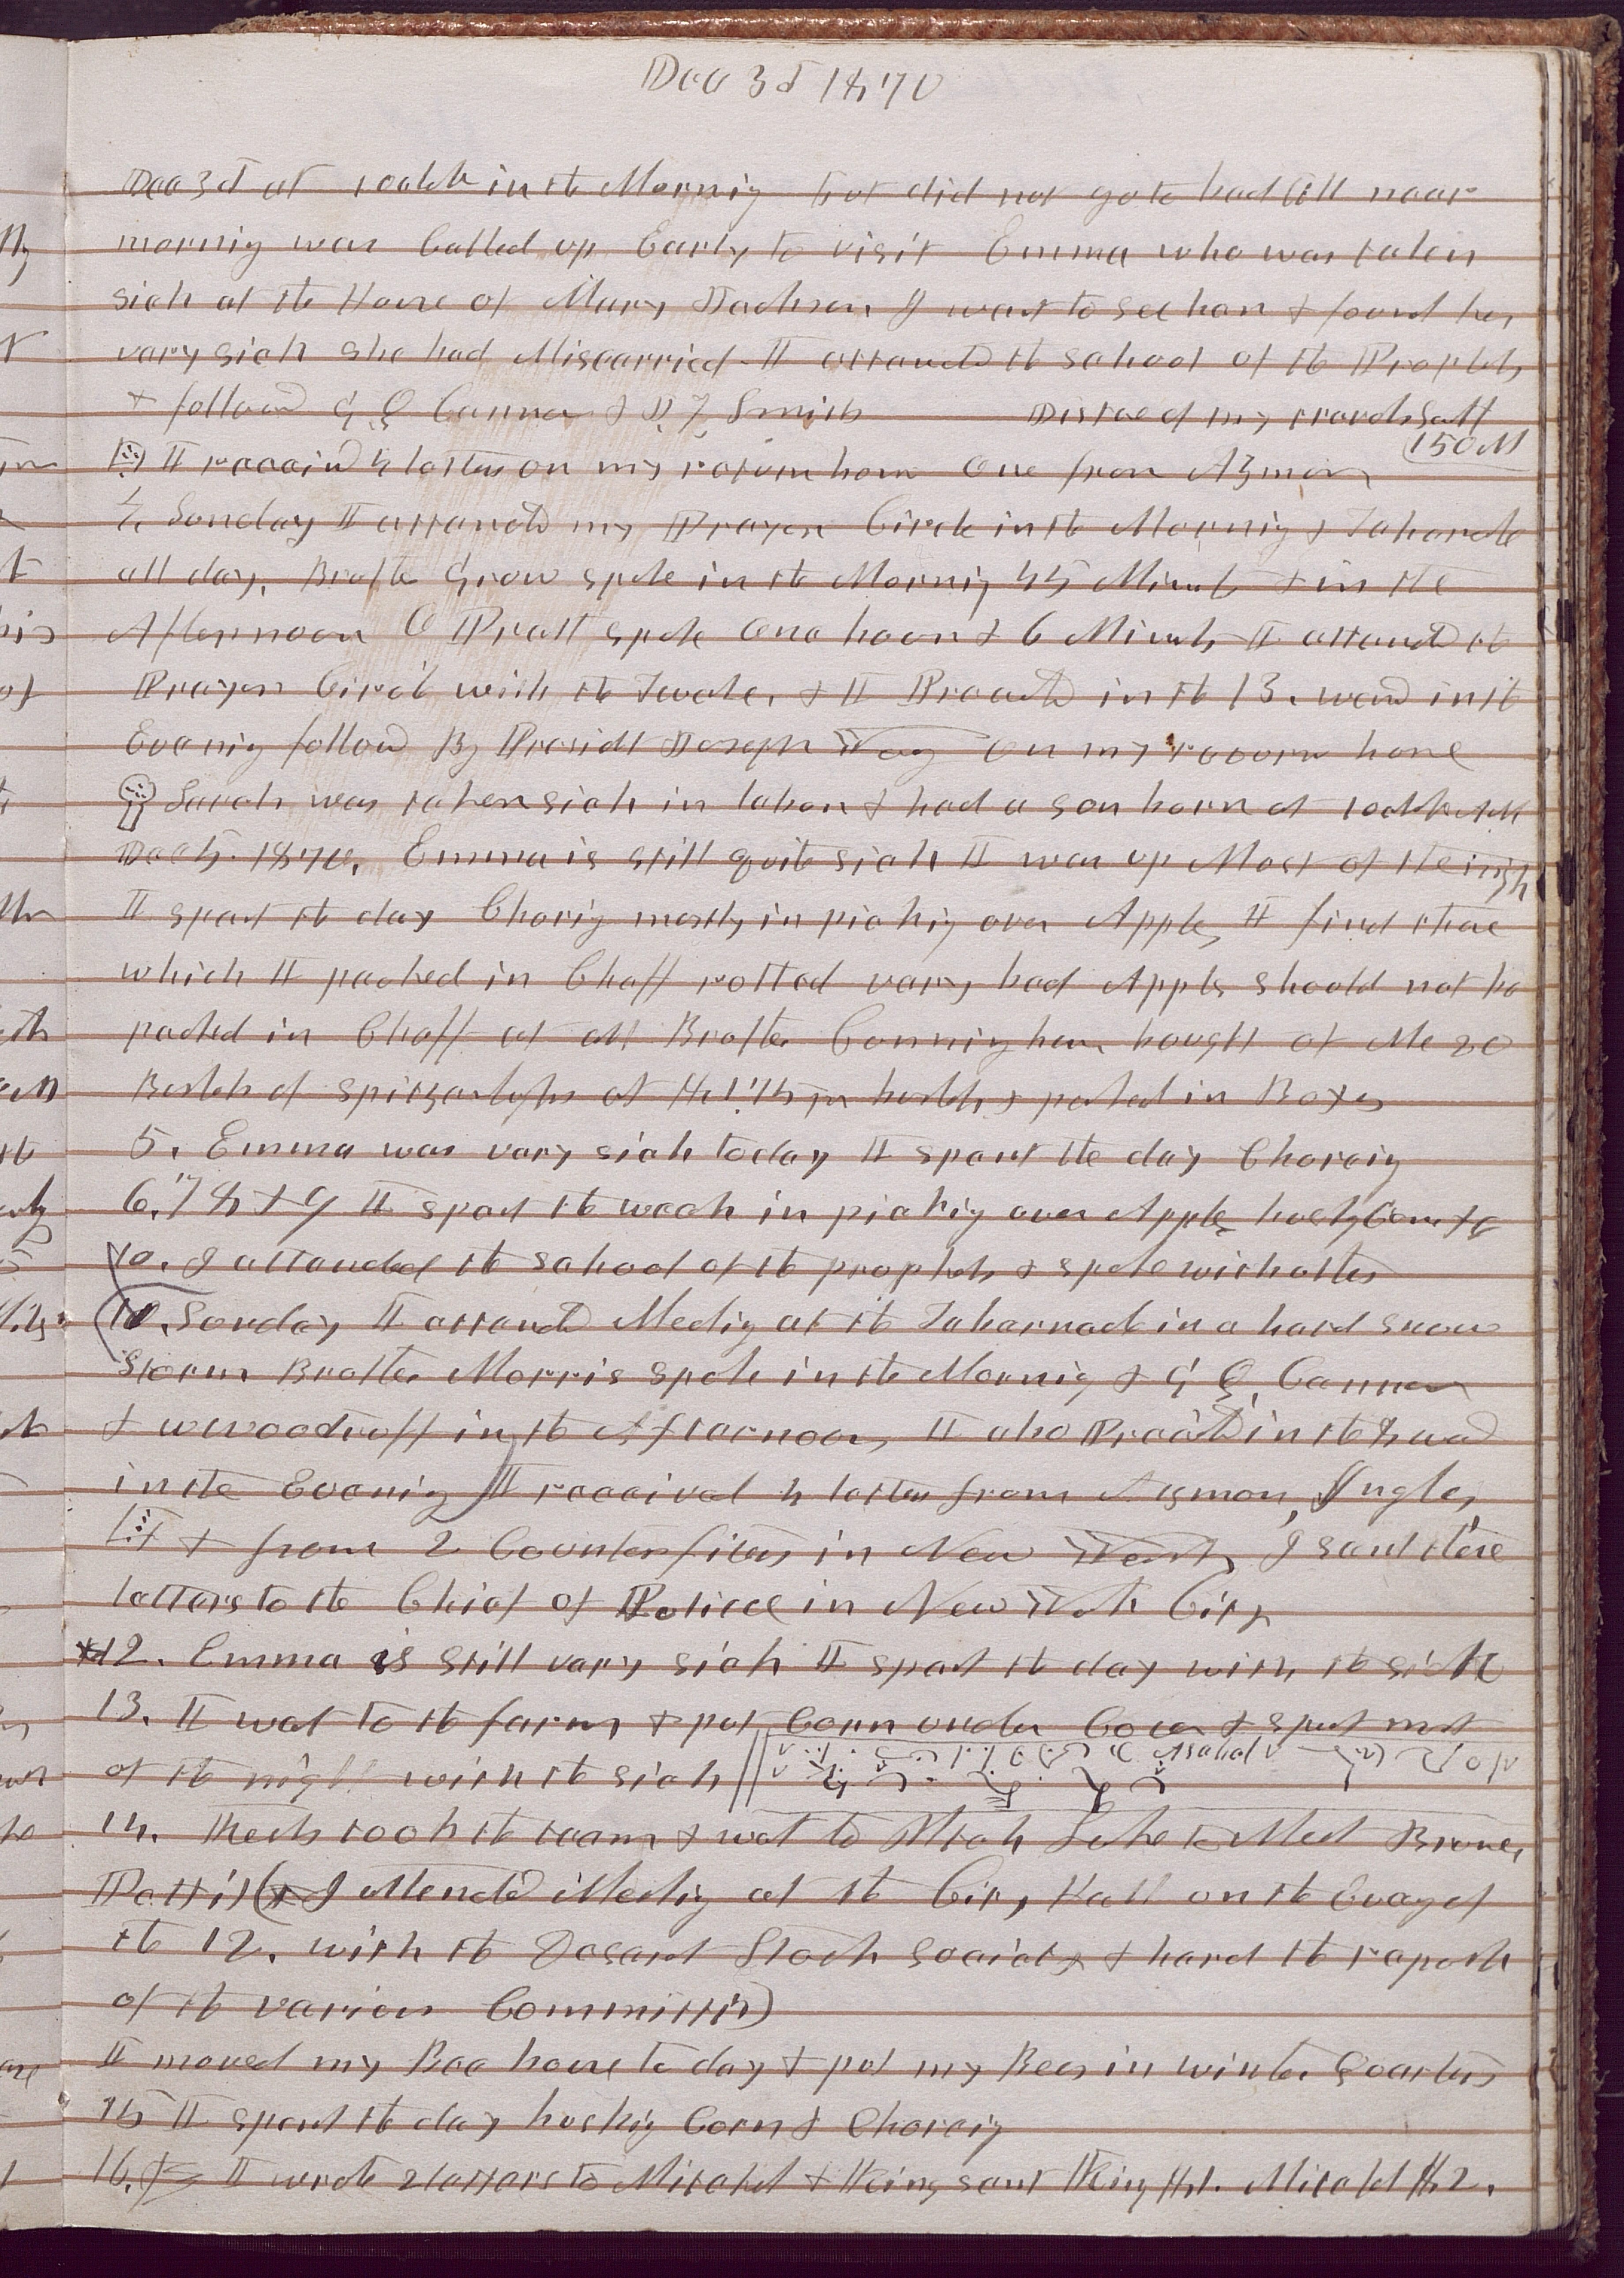 Dec 3d 1870
Dec 3d at 1 oclok in the Mornig but did not go to bed till near
mornig was Called up Early to visit Emma who was taken
sick at the House of Mary Jackson. I went to see her & found her
vary sick she had Miscarried I attend the school of the Prophets
& followed G Q Cannon & J F Smith Distance of my travels Salt
150 M
I receivd 4 letters on my return home One from Azmon
4 Sunday I attend my Prayer Circle in the Mornig & Tabernacle
all day. Brother Grow spoke in the Mornig 45 Minuts & in the
Afternoon O Pratt spoke One hour & 6 Minuts I attend the
Prayer Circle with the Twelve, & I Preached in the 13. ward in the
Evenig followd By Presidt Joseph Young On my return home
Sarah was taken sick in labor & had a son born at 1 oclok AM
Dec 5. 1870. Emma is still quite sick I was up Most of the nigh
I spent the day Chorig mostly in pickig over Apples I find those
which I packed in Chaff rotted vary bad Apples should not be
packed in Chaff at all Brother Conningham bought of Me 20
Bushels of Spitzenburghs at $1.75 per bushels & packed in Boxes
5. Emma was vary sick today I spent the day Choreig
6. 7 8 & 9 I spent the week in pickig over Apples huskg Corn &c
10. I attended the School of the prophets & spoke with others
11. Sunday I attend Meetig at the Tabernacle in a hard snow
Storm Brother Morris Spoke in the Mornig & G Q Cannon
& W Woodruff in the Afternoon I also Preachd in the 8 ward
in the Evenig I received 4 letters from Azmon, Ingles,
& from 2 Counterfiters in New York, I sent these
letters to the Chief of Police in New York City
12. Emma is still vary sick I spent the day with the sick
13. I went to the farm & put Corn under Cover & spent most
of the night with the sick
14. took the team & went to Utah Lake to Meet
(& I Attend Meetig at the City Hall on the Eveng of
the 12. with the Deseret Stock Society & hard the reports
of the various Committies)
I moved my Bee house to day & put my Bees in winter Quarters
15 I spent the day huskig Corn & Choreig
16. I wrote 2 letters to & King sent King $1. $2.